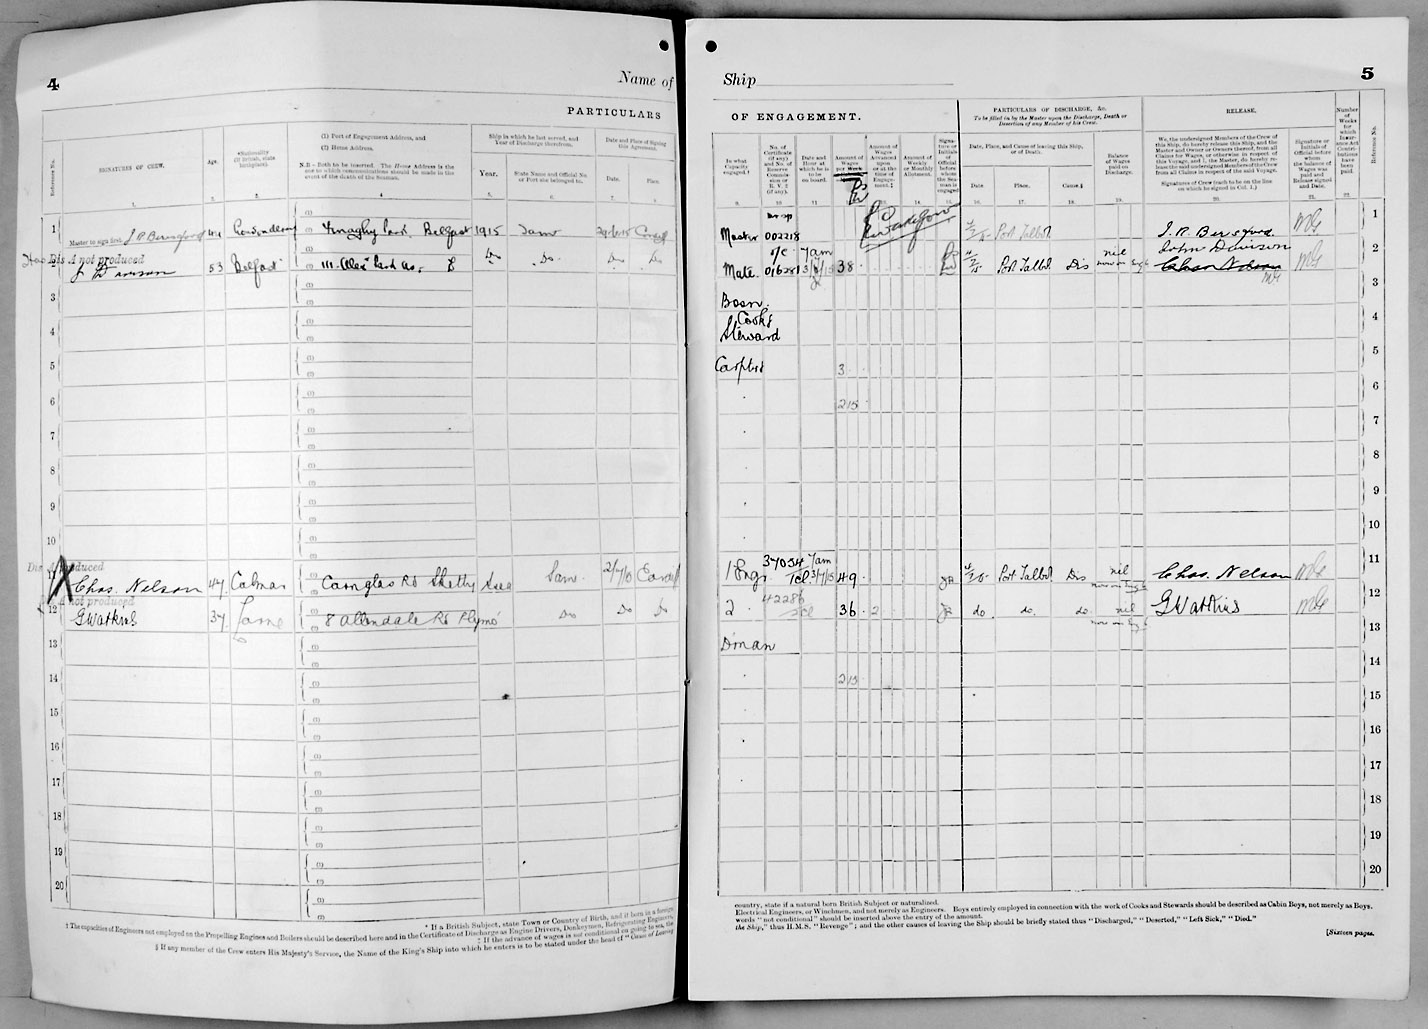 4
Name of
PARTICULARS
Reference No.
SIGNATURES OF CREW.
1.
Age.
2.
*Nationality
(If British, state
birthplace).
3.
(1) Port of Engagement Address, and
(2) Home Address.
N.B.—Both to be inserted. The Home Address is the
one to which communications should be made in the
event of the death of the Seaman.
4.
Ship in which he last served, and
Year of Discharge therefrom.
Year.
5.
State Name and Official No.
or Port she belonged to.
6.
Date and Place of Signing
this Agreement.
Date.
7.
Place.
8.
1
Master to sign first.
J. R. Beresford
44
Londonderry
Finaghy Park Belfast
1915
Same
Cardiff
2
Dis A not produced
J Davison
53
Belfast
Do
Do
Do
Do
3
4
5
6
7
8
9
10
Dis A produced
11
Chas. Nelson
47
Carnglas Rd Sketty
Same
Cardiff
A not produced
12
G Watkins
37
8 Allendale Rd Plymo'
Do
Do
Do
13
14
15
16
17
18
19
20
* If a British Subject, state Town or Country of Birth, and if born in a foreign
† The capacities of Engineers not employed on the Propelling Engines and Boilers should be described here and in the Certificate of Discharge as Engine Drivers, Donkeymen, Refrigerating Engineers,
‡ If the advance of wages is not conditional on going to sea, the
§ If any member of the Crew enters His Majesty's Service, the Name of the King's Ship into which he enters is to be stated under the head of "Cause of Leaving
Ship
5
OF ENGAGEMENT.
PARTICULARS OF DISCHARGE, &c.
To be filled in by the Master upon the Discharge, Death or
Desertion of any Member of his Crew.
RELEASE.
In what
Capacity
engaged.†
9.
No. of
Certificate
(if any)
and No. of
Reserve
Commis-
sion or
R. V. 2
(if any).
10.
Date and
Hour at
which he is
to be
on board.
11.
Amount of
Wages
per Month
12.
Amount of
Wages
Advanced
upon
or at the
time of
Engage-
ment.‡
13.
Amount of
Weekly
or Monthly
Allotment.
14.
Signa-
ture or
Initials of
Official
before
whom
the Sea-
man is
engaged
15.
Date, Place, and Cause of leaving this Ship,
or of Death.
Date.
16.
Place.
17.
Cause.§
18.
Balance
of Wages
paid on
Discharge.
19.
We, the undersigned Members of the Crew of
this Ship, do hereby release this Ship, and the
Master and Owner or Owners thereof, from all
Claims for Wages, or otherwise in respect of
this Voyage, and I, the Master, do hereby re-
lease the said undersigned Members of the Crew
from all Claims in respect of the said Voyage.
Signatures of Crew (each to be on the line
on which he signed in Col. 1.)
20.
Signature or
Initials of
Official before
whom
the balance of
Wages was
paid and
Release signed
and Date.
21.
Number
of
Weeks
for
which
Insur-
ance Act
Contri-
butions
have
been
paid.
22.
Reference No.
Master
002218
Port Talbot
J. R. Beresford
1
Mate
016281
7am
38
Port Talbot
Dis
nil
John Davison
Chas Nelson
2
Bosn.
3
Cook &
Steward
4
Carptr
3
5
215
6
7
8
9
10
1 Engr
37054
7am
3/7/15
49
Port Talbot
Dis
nil
Chas. Nelson
11
2
42286
36
do
do.
do
nil
G Watkins
12
Dman
13
215
14
15
16
17
18
19
20
country, state if a natural born British Subject or naturalized.
Electrical Engineers, or Winchmen, and not merely as Engineers. Boys entirely employed in connection with the work of Cooks and Stewards should be described as Cabin Boys, not merely as Boys.
words "not conditional" should be inserted above the entry of the amount.
the Ship," thus H.M.S. "Revenge"; and the other causes of leaving the Ship should be briefly stated thus "Discharged," "Deserted," "Left Sick," "Died."
[Sixteen pages.